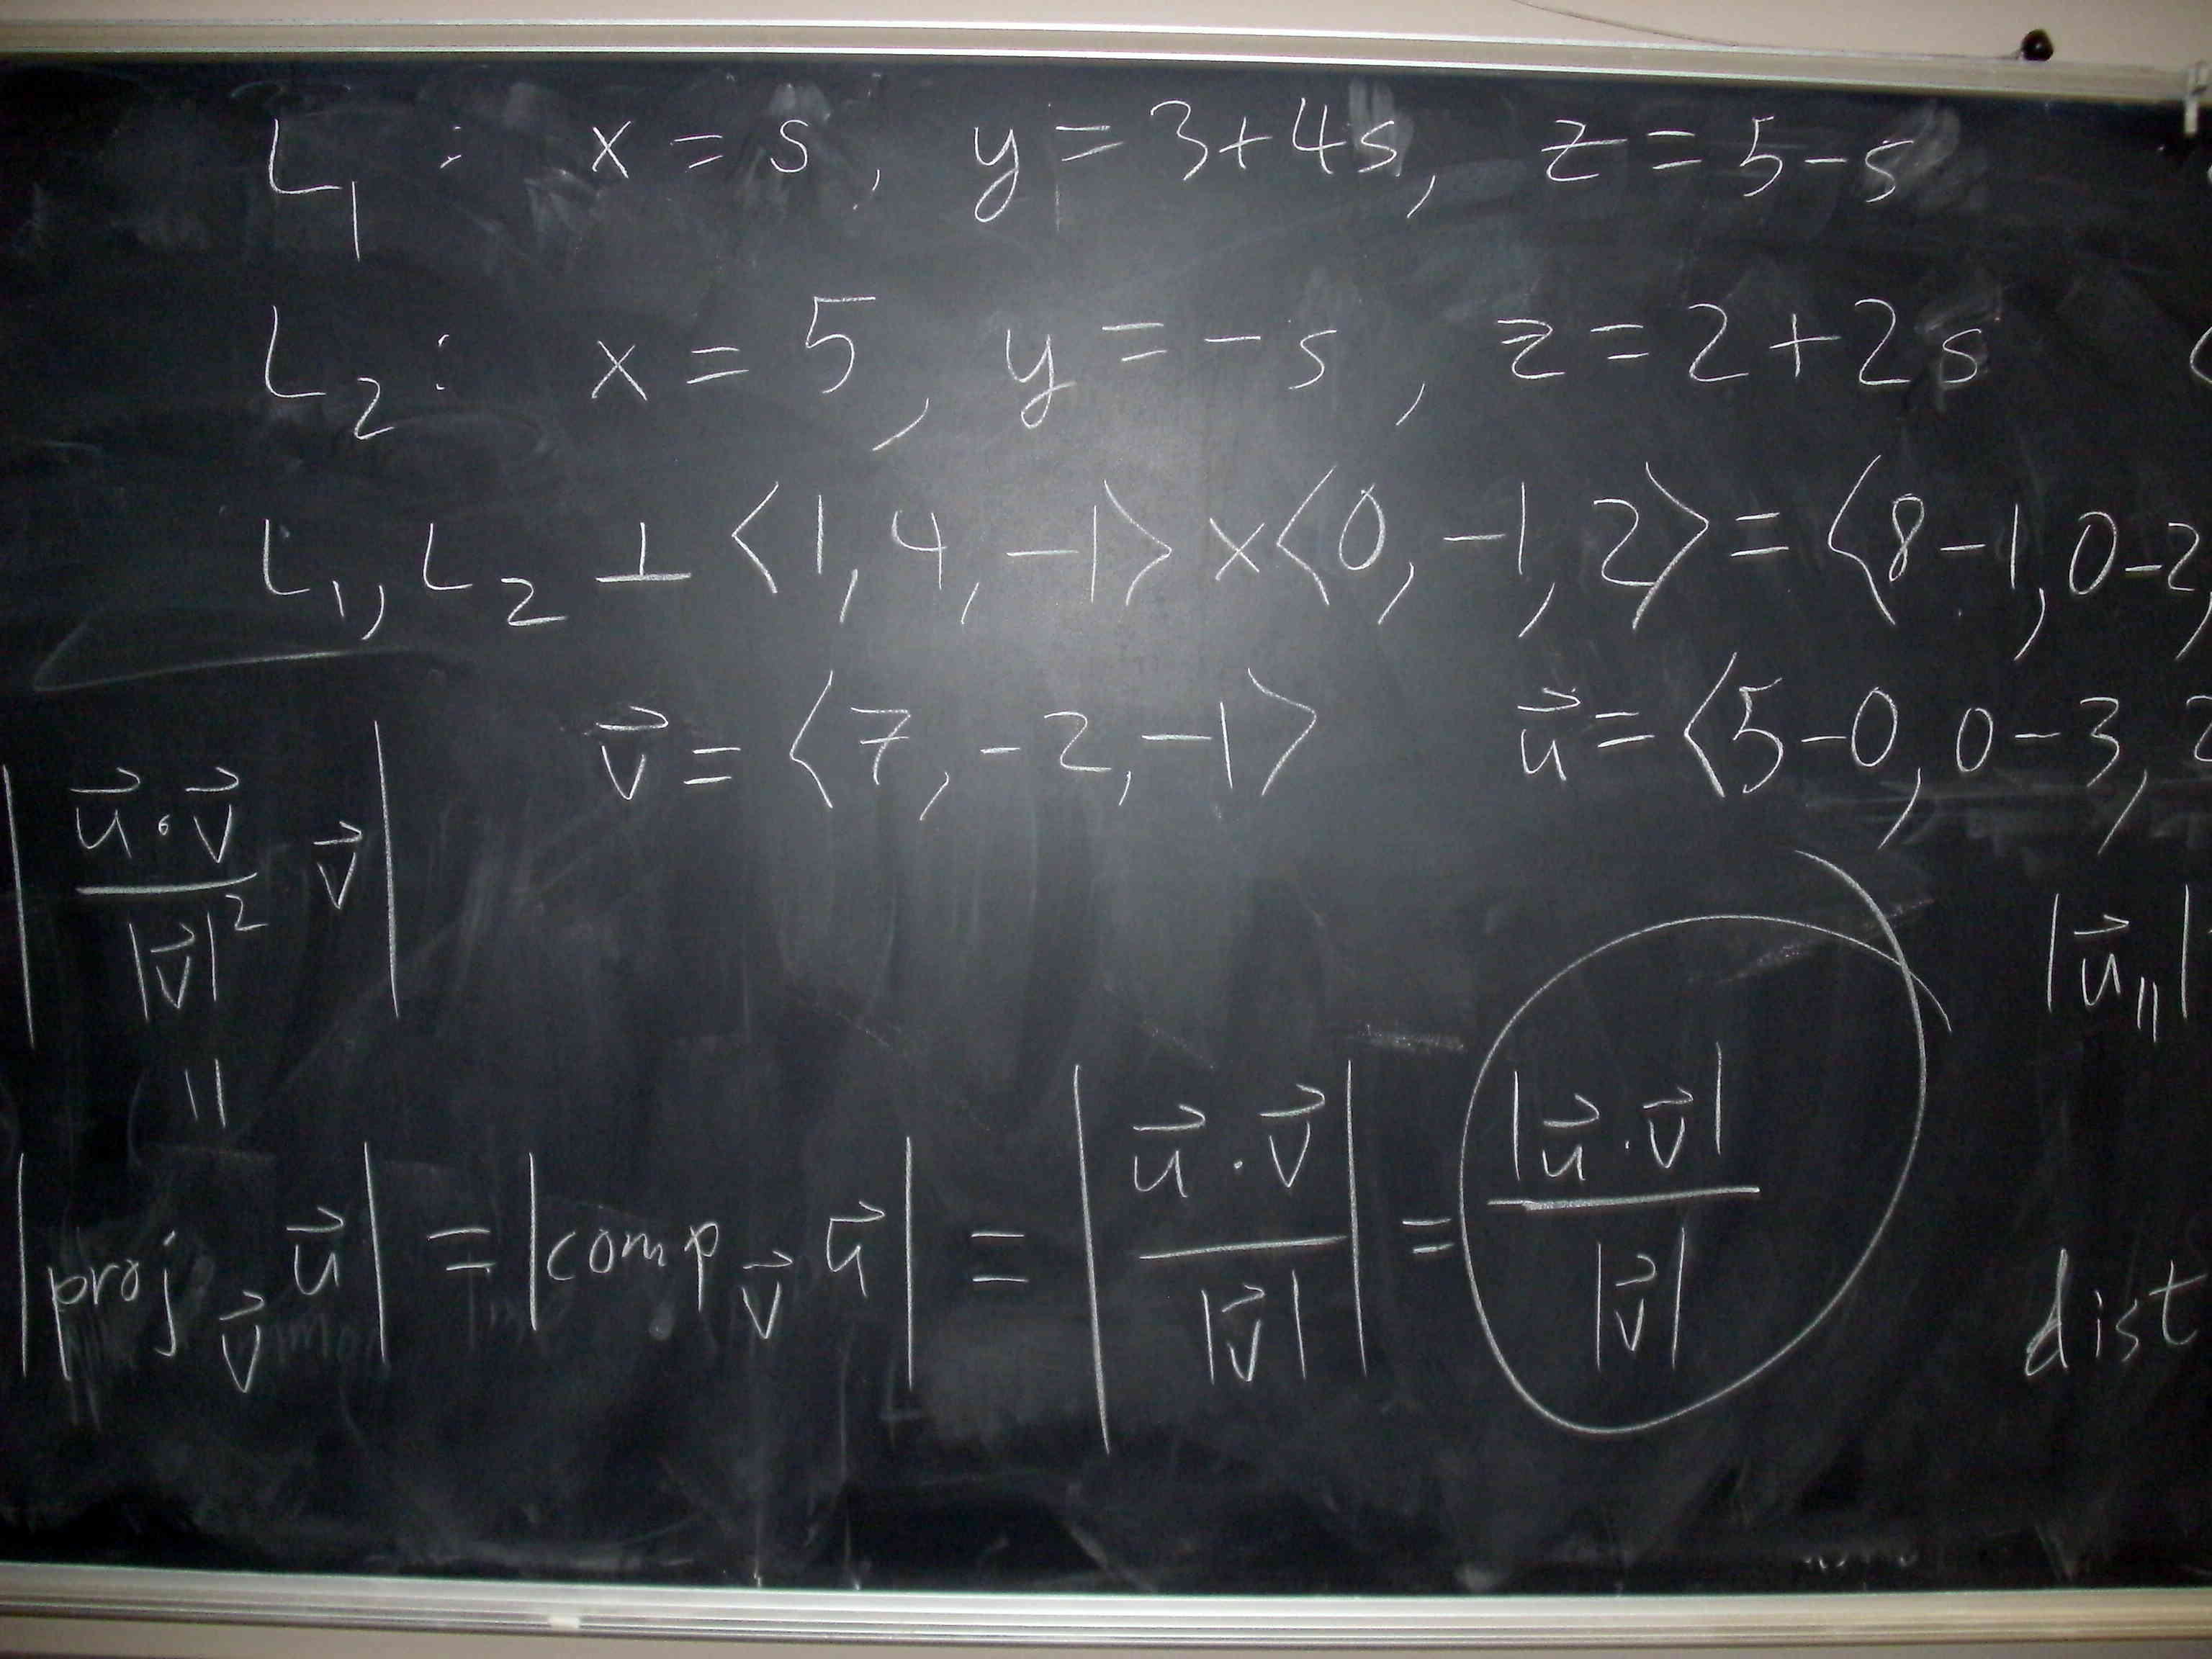 L₁ : x = s, y = 3+4s, z = 5-s
L₂ : x = 5, y = -s, z = 2+2s
L₁, L₂ ⊥ ⟨1, 4, -1⟩ × ⟨0, -1, 2⟩ = ⟨8-1, 0-2,
v⃗ = ⟨7, -2, -1⟩ u⃗ = ⟨5-0, 0-3, 2
| (u⃗·v⃗)/|v⃗|² v⃗ | |u⃗_∥|
||
|proj_v⃗ u⃗| = |comp_v⃗ u⃗| = | (u⃗·v⃗)/|v⃗| | = |u⃗·v⃗|/|v⃗| dist